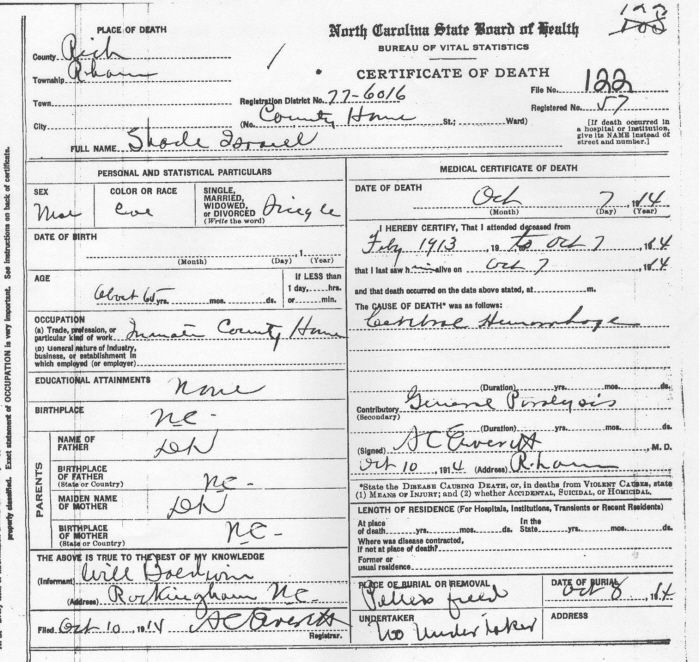 122
PLACE OF DEATH
North Carolina State Board of Health
BUREAU OF VITAL STATISTICS
CERTIFICATE OF DEATH
County Rich
Township R.ham
Town
City
Registration District No. 77-6016
File No. 122
Registered No. 57
(No. County Home St.; Ward)
[If death occurred in a hospital or institution, give its NAME instead of street and number.]
FULL NAME Shade Israel
PERSONAL AND STATISTICAL PARTICULARS
SEX
COLOR OR RACE
SINGLE, MARRIED, WIDOWED, or DIVORCED (Write the word) Single
DATE OF BIRTH
(Month) (Day) (Year)
AGE
About 65 yrs. mos. ds.
If LESS than 1 day, hrs. or min.
OCCUPATION
(a) Trade, profession, or particular kind of work Inmate County Home
(b) General nature of industry, business, or establishment in which employed (or employer)
EDUCATIONAL ATTAINMENTS None
BIRTHPLACE NC-
PARENTS
NAME OF FATHER DK
BIRTHPLACE OF FATHER (State or Country) NC-
MAIDEN NAME OF MOTHER DK
BIRTHPLACE OF MOTHER (State or Country) NC-
THE ABOVE IS TRUE TO THE BEST OF MY KNOWLEDGE
(Informant) Will
(Address) Rockingham NC.
Filed Oct 10 1914 AC Everett Registrar.
MEDICAL CERTIFICATE OF DEATH
DATE OF DEATH
Oct 7, 1914
(Month) (Day) (Year)
I HEREBY CERTIFY, That I attended deceased from
Feby 1913, 19 to Oct 7 14
that I last saw him alive on Oct 7 14
and that death occurred on the date above stated, at m.
The CAUSE OF DEATH* was as follows:
Cerebral Hemorrhage
(Duration) yrs. mos. ds.
Contributory General Paralysis
(Secondary)
(Duration) yrs. mos. ds.
(Signed) AC Everett, M.D.
Oct 10, 1914 (Address) R.ham
*State the DISEASE CAUSING DEATH, or, in deaths from VIOLENT CAUSES, state
(1) MEANS OF INJURY; and (2) whether ACCIDENTAL, SUICIDAL, or HOMICIDAL.
LENGTH OF RESIDENCE (For Hospitals, Institutions, Transients or Recent Residents)
At place of death yrs. mos. ds. In the State yrs. mos. ds.
Where was disease contracted, if not at place of death?
Former or usual residence
PLACE OF BURIAL OR REMOVAL
DATE OF BURIAL
Oct 8, 1914
UNDERTAKER
No Undertaker
ADDRESS
properly classified. Exact statement of OCCUPATION is very important. See instructions on back of certificate.